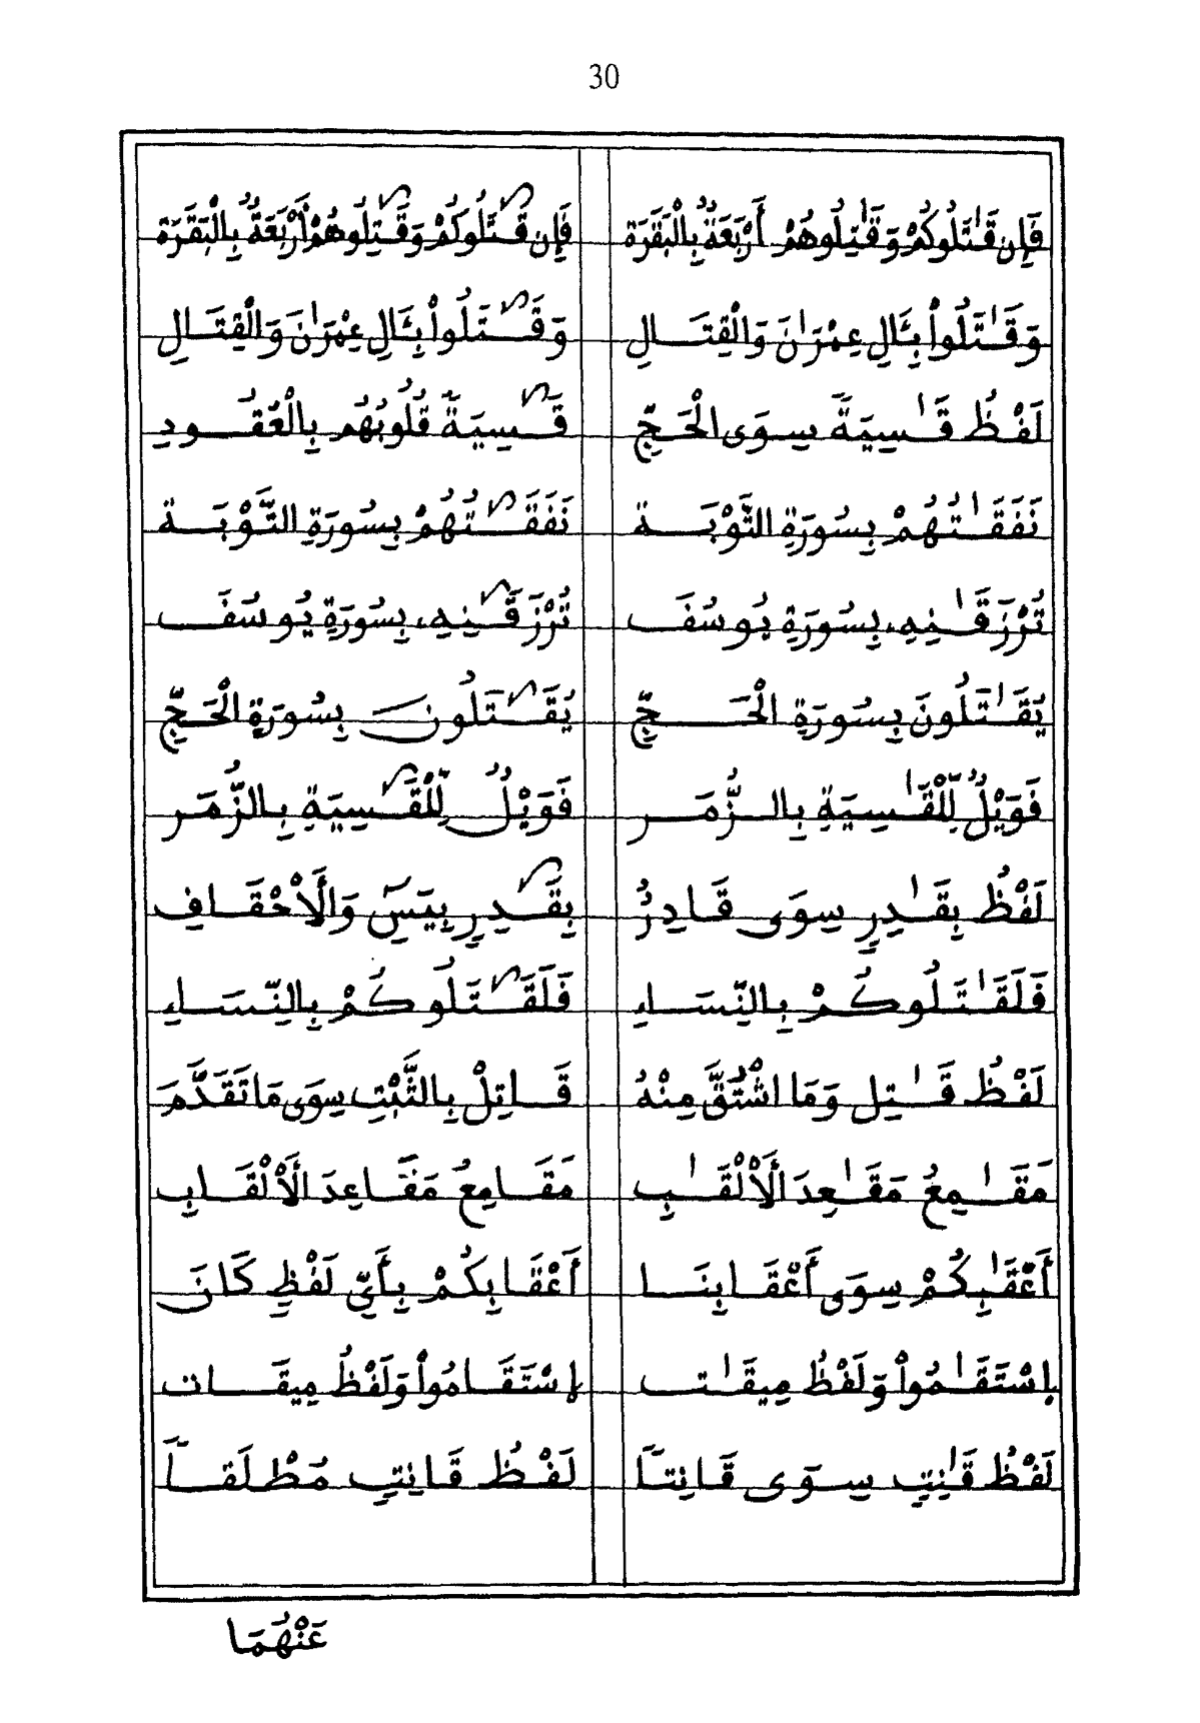 30
فَإِن قَٰتَلُوكُمْ وَقَٰتِلُوهُمْ أَرْبَعَةٌ بِالْبَقَرَة فَإِن قَٰتَلُوكُمْ وَقَٰتِلُوهُمْ أَرْبَعَةٌ بِالْبَقَرَة
وَقَٰتَلُواْ بِـَٔالِ عِمْرَٰنَ وَالْقِتَالِ وَقَٰتَلُواْ بِـَٔالِ عِمْرَٰنَ وَالْقِتَالِ
لَفْظُ قَٰسِيَةً سِوَى الْحَجِّ قَٰسِيَةً قُلُوبُهُم بِالْعُقُودِ
نَفَقَٰتُهُمْ بِسُورَةِ التَّوْبَة نَفَقَٰتُهُمْ بِسُورَةِ التَّوْبَة
تُرْزَقَٰنِهِۦ بِسُورَةِ يُوسُفَ تُرْزَقَٰنِهِۦ بِسُورَةِ يُوسُفَ
يُقَٰتَلُونَ بِسُورَةِ الْحَجِّ يُقَٰتَلُونَ بِسُورَةِ الْحَجِّ
فَوَيْلٌ لِّلْقَٰسِيَةِ بِالزُّمَر فَوَيْلٌ لِّلْقَٰسِيَةِ بِالزُّمَر
لَفْظُ بِقَٰدِرٍ سِوَى قَادِرُ بِقَٰدِرٍ بِيَسَ وَالَأحْقَافِ
فَلَقَٰتَلُوكُمْ بِالنِّسَاءِ فَلَقَٰتَلُوكُمْ بِالنِّسَاءِ
لَفْظُ قَٰتِل وَمَا اشْتُقَّ مِنْهُ قَاتِلْ بِالثَّبْتِ سِوَى مَا تَقَدَّمَ
مَقَٰمِعُ مَقَٰعِدَ الَأْلْقَٰبِ مَقَامِعُ مَقَاعِدَ الَأْلْقَابِ
أَعْقَٰبِكُمْ سِوَى أَعْقَابِنَا أَعْقَابِكُمْ بِأَيِّ لَفْظٍ كَانَ
إِسْتَقَٰمُواْ وَلَفْظُ مِيقَٰت إِسْتَقَامُواْ وَلَفْظُ مِيقَات
لَفْظُ قَٰنِتٍ سِوَى قَانِتاً لَفْظُ قَانِتٍ مُطْلَقاً
عَنْهُمَا